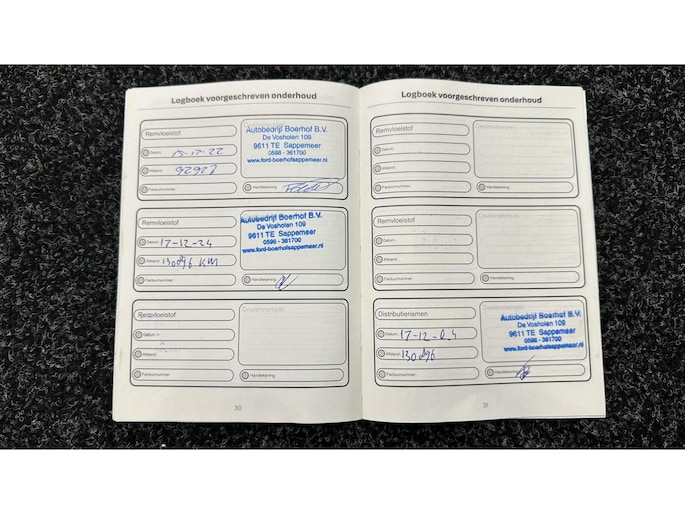 Logboek voorgeschreven onderhoud
Remvloeistof
Datum: 15-12-22
Afstand: 92628
Factuurnummer:
Autobedrijf Boerhof B.V.
De Vosholen 109
9611 TE Sappemeer
0598 - 361700
www.ford-boerhofsappemeer.nl
Handtekening:
Remvloeistof
Datum: 17-12-24
Afstand: 130896 KM
Factuurnummer:
Autobedrijf Boerhof B.V.
De Vosholen 109
9611 TE Sappemeer
0598 - 361700
www.ford-boerhofsappemeer.nl
Handtekening:
Remvloeistof
Datum:
Afstand:
Factuurnummer:
Dealerstempel
Handtekening:
30
Logboek voorgeschreven onderhoud
Remvloeistof
Datum:
Afstand:
Factuurnummer:
Dealerstempel
Handtekening:
Remvloeistof
Datum:
Afstand:
Factuurnummer:
Dealerstempel
Handtekening:
Distributieriemen
Datum: 17-12-24
Afstand: 130896
Factuurnummer:
Autobedrijf Boerhof B.V.
De Vosholen 109
9611 TE Sappemeer
0598 - 361700
www.ford-boerhofsappemeer.nl
Handtekening:
31